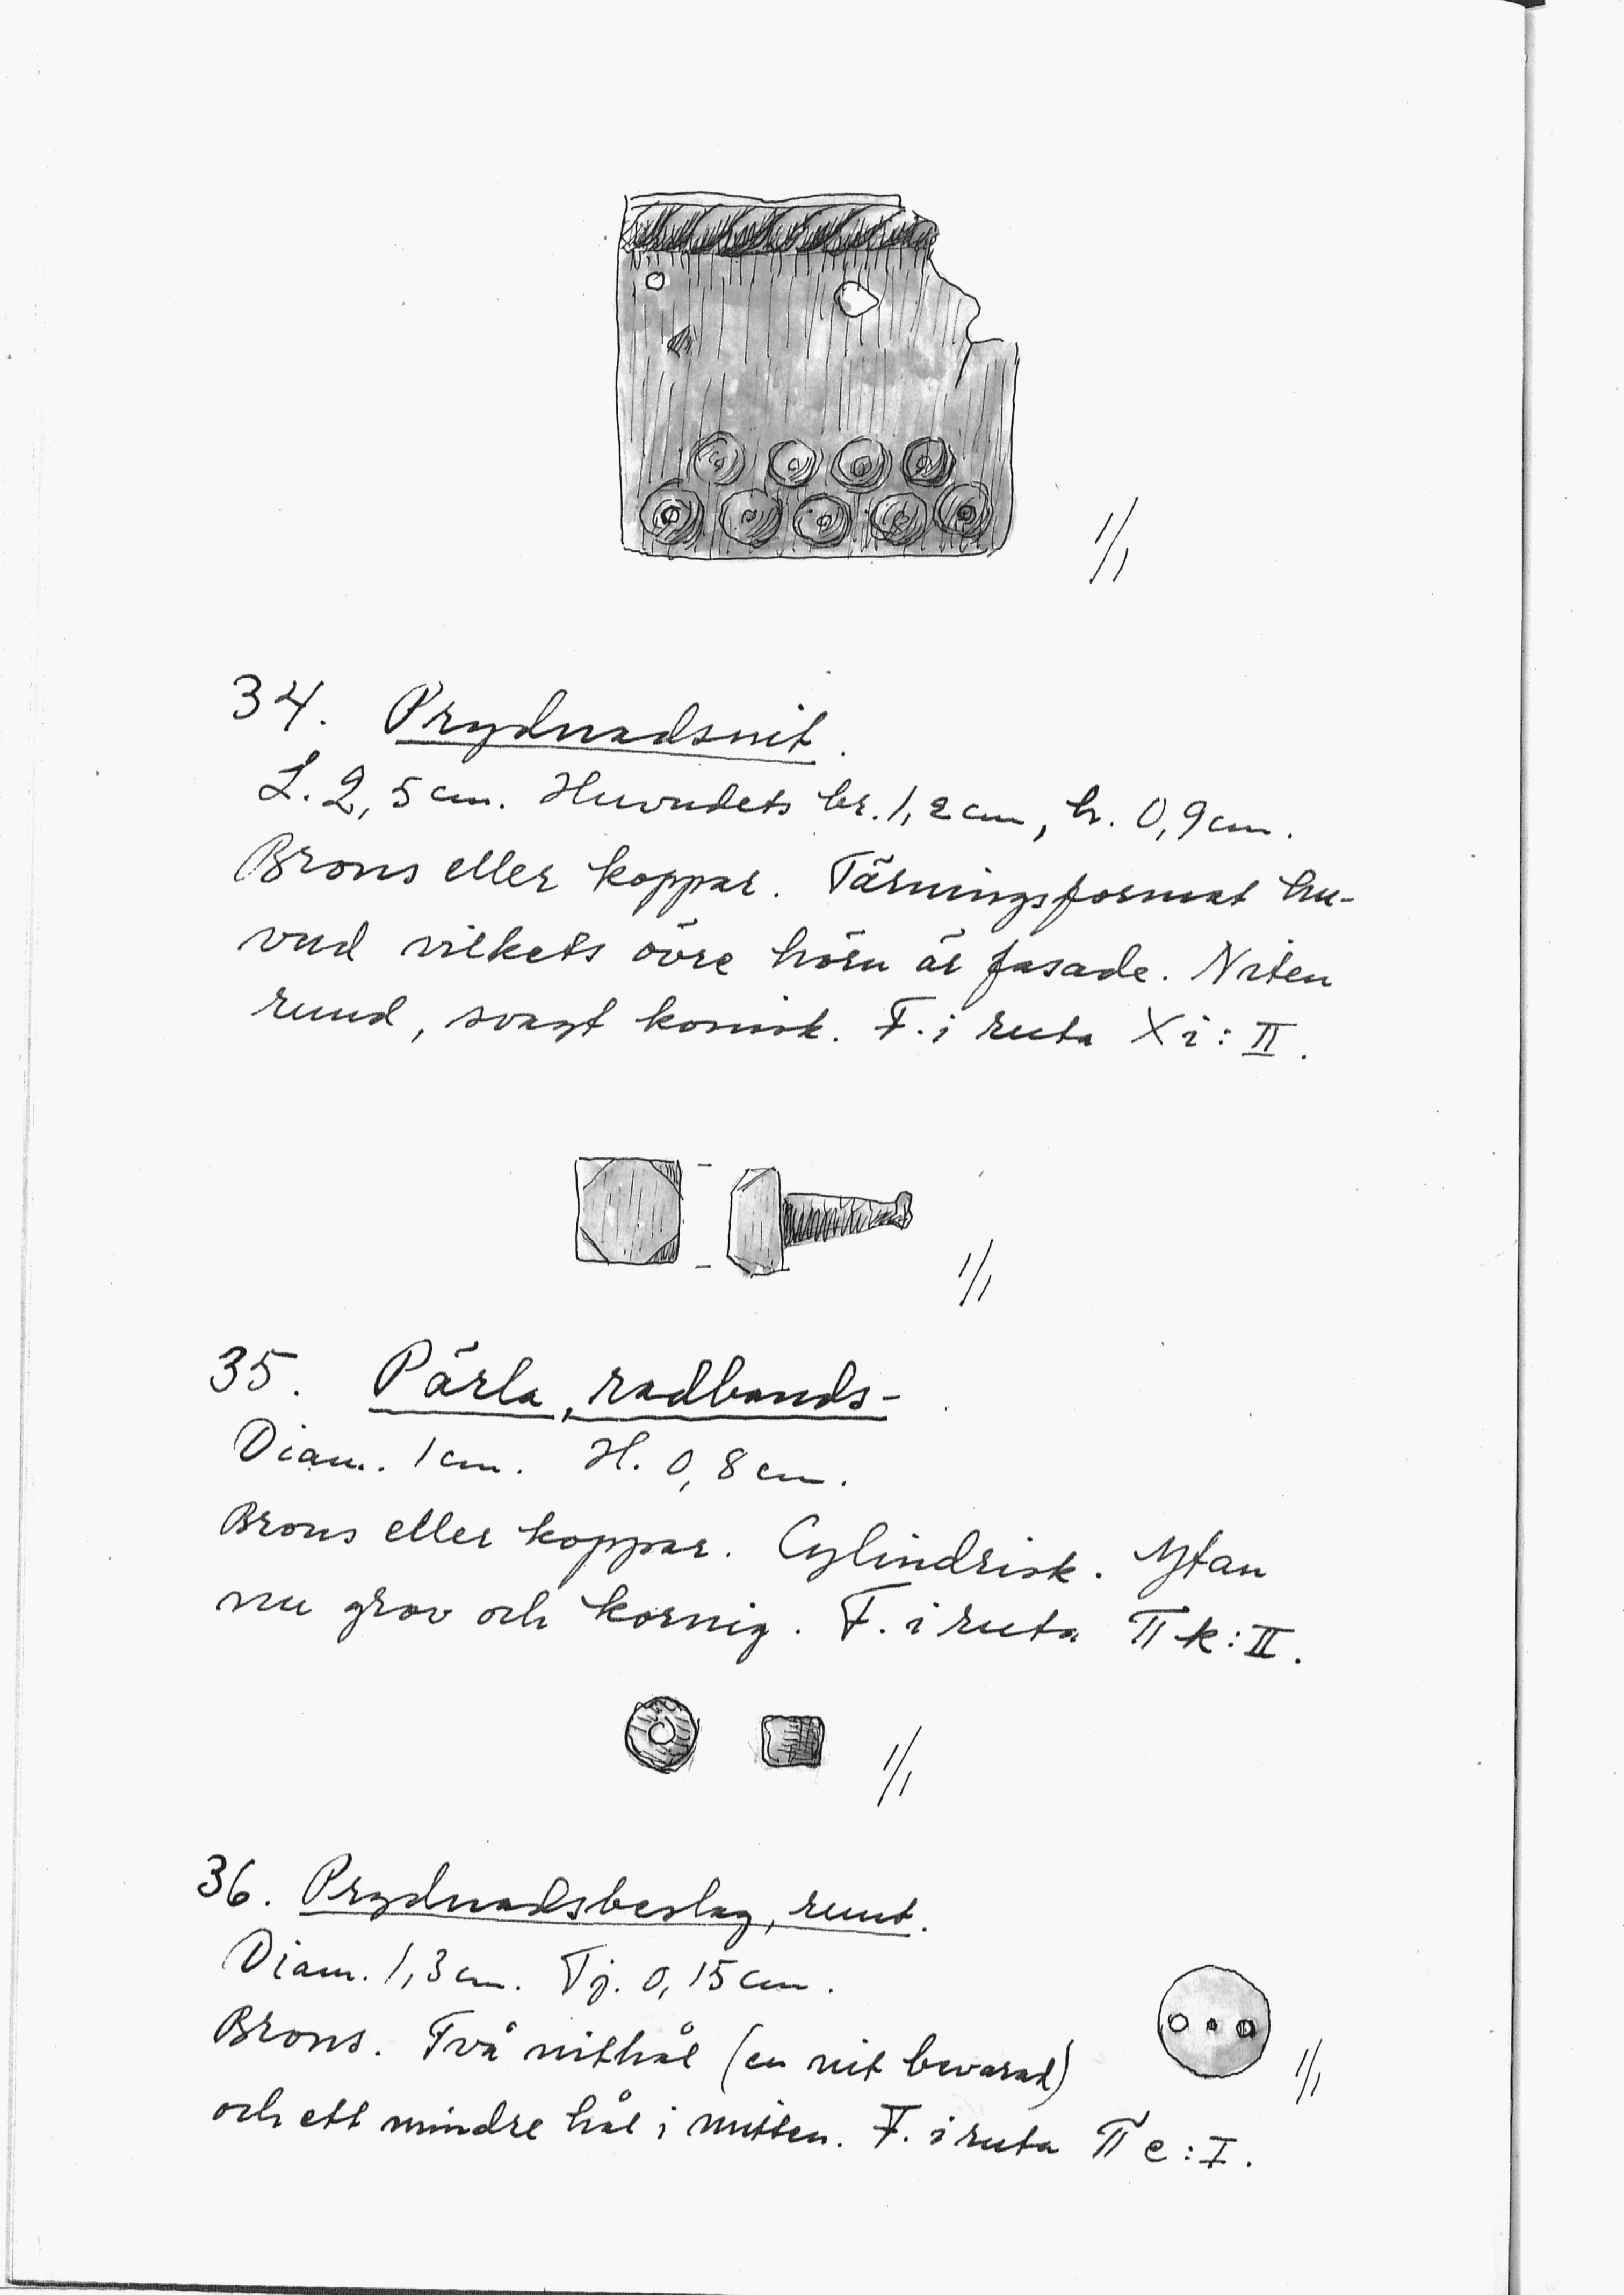 1/1
34. Prydnadsnit.
L. 2,5 cm. Huvudets br. 1,2 cm, h. 0,9 cm.
Brons eller koppar. Tärningsformat hu-
vud vilkets övre hörn är fasade. Niten
rund, svagt konisk. F. i ruta X i : II.
1/1
35. Pärla, radbands-
Diam. 1 cm. H. 0,8 cm.
Brons eller koppar. Cylindrisk. Ytan
nu grov och kornig. F. i ruta II k : II.
1/1
36. Prydnadsbeslag, runt.
Diam. 1,3 cm. Tj. 0,15 cm.
Brons. Två nithål (en nit bevarad)
1/1
och ett mindre hål i mitten. F. i ruta II e : I.